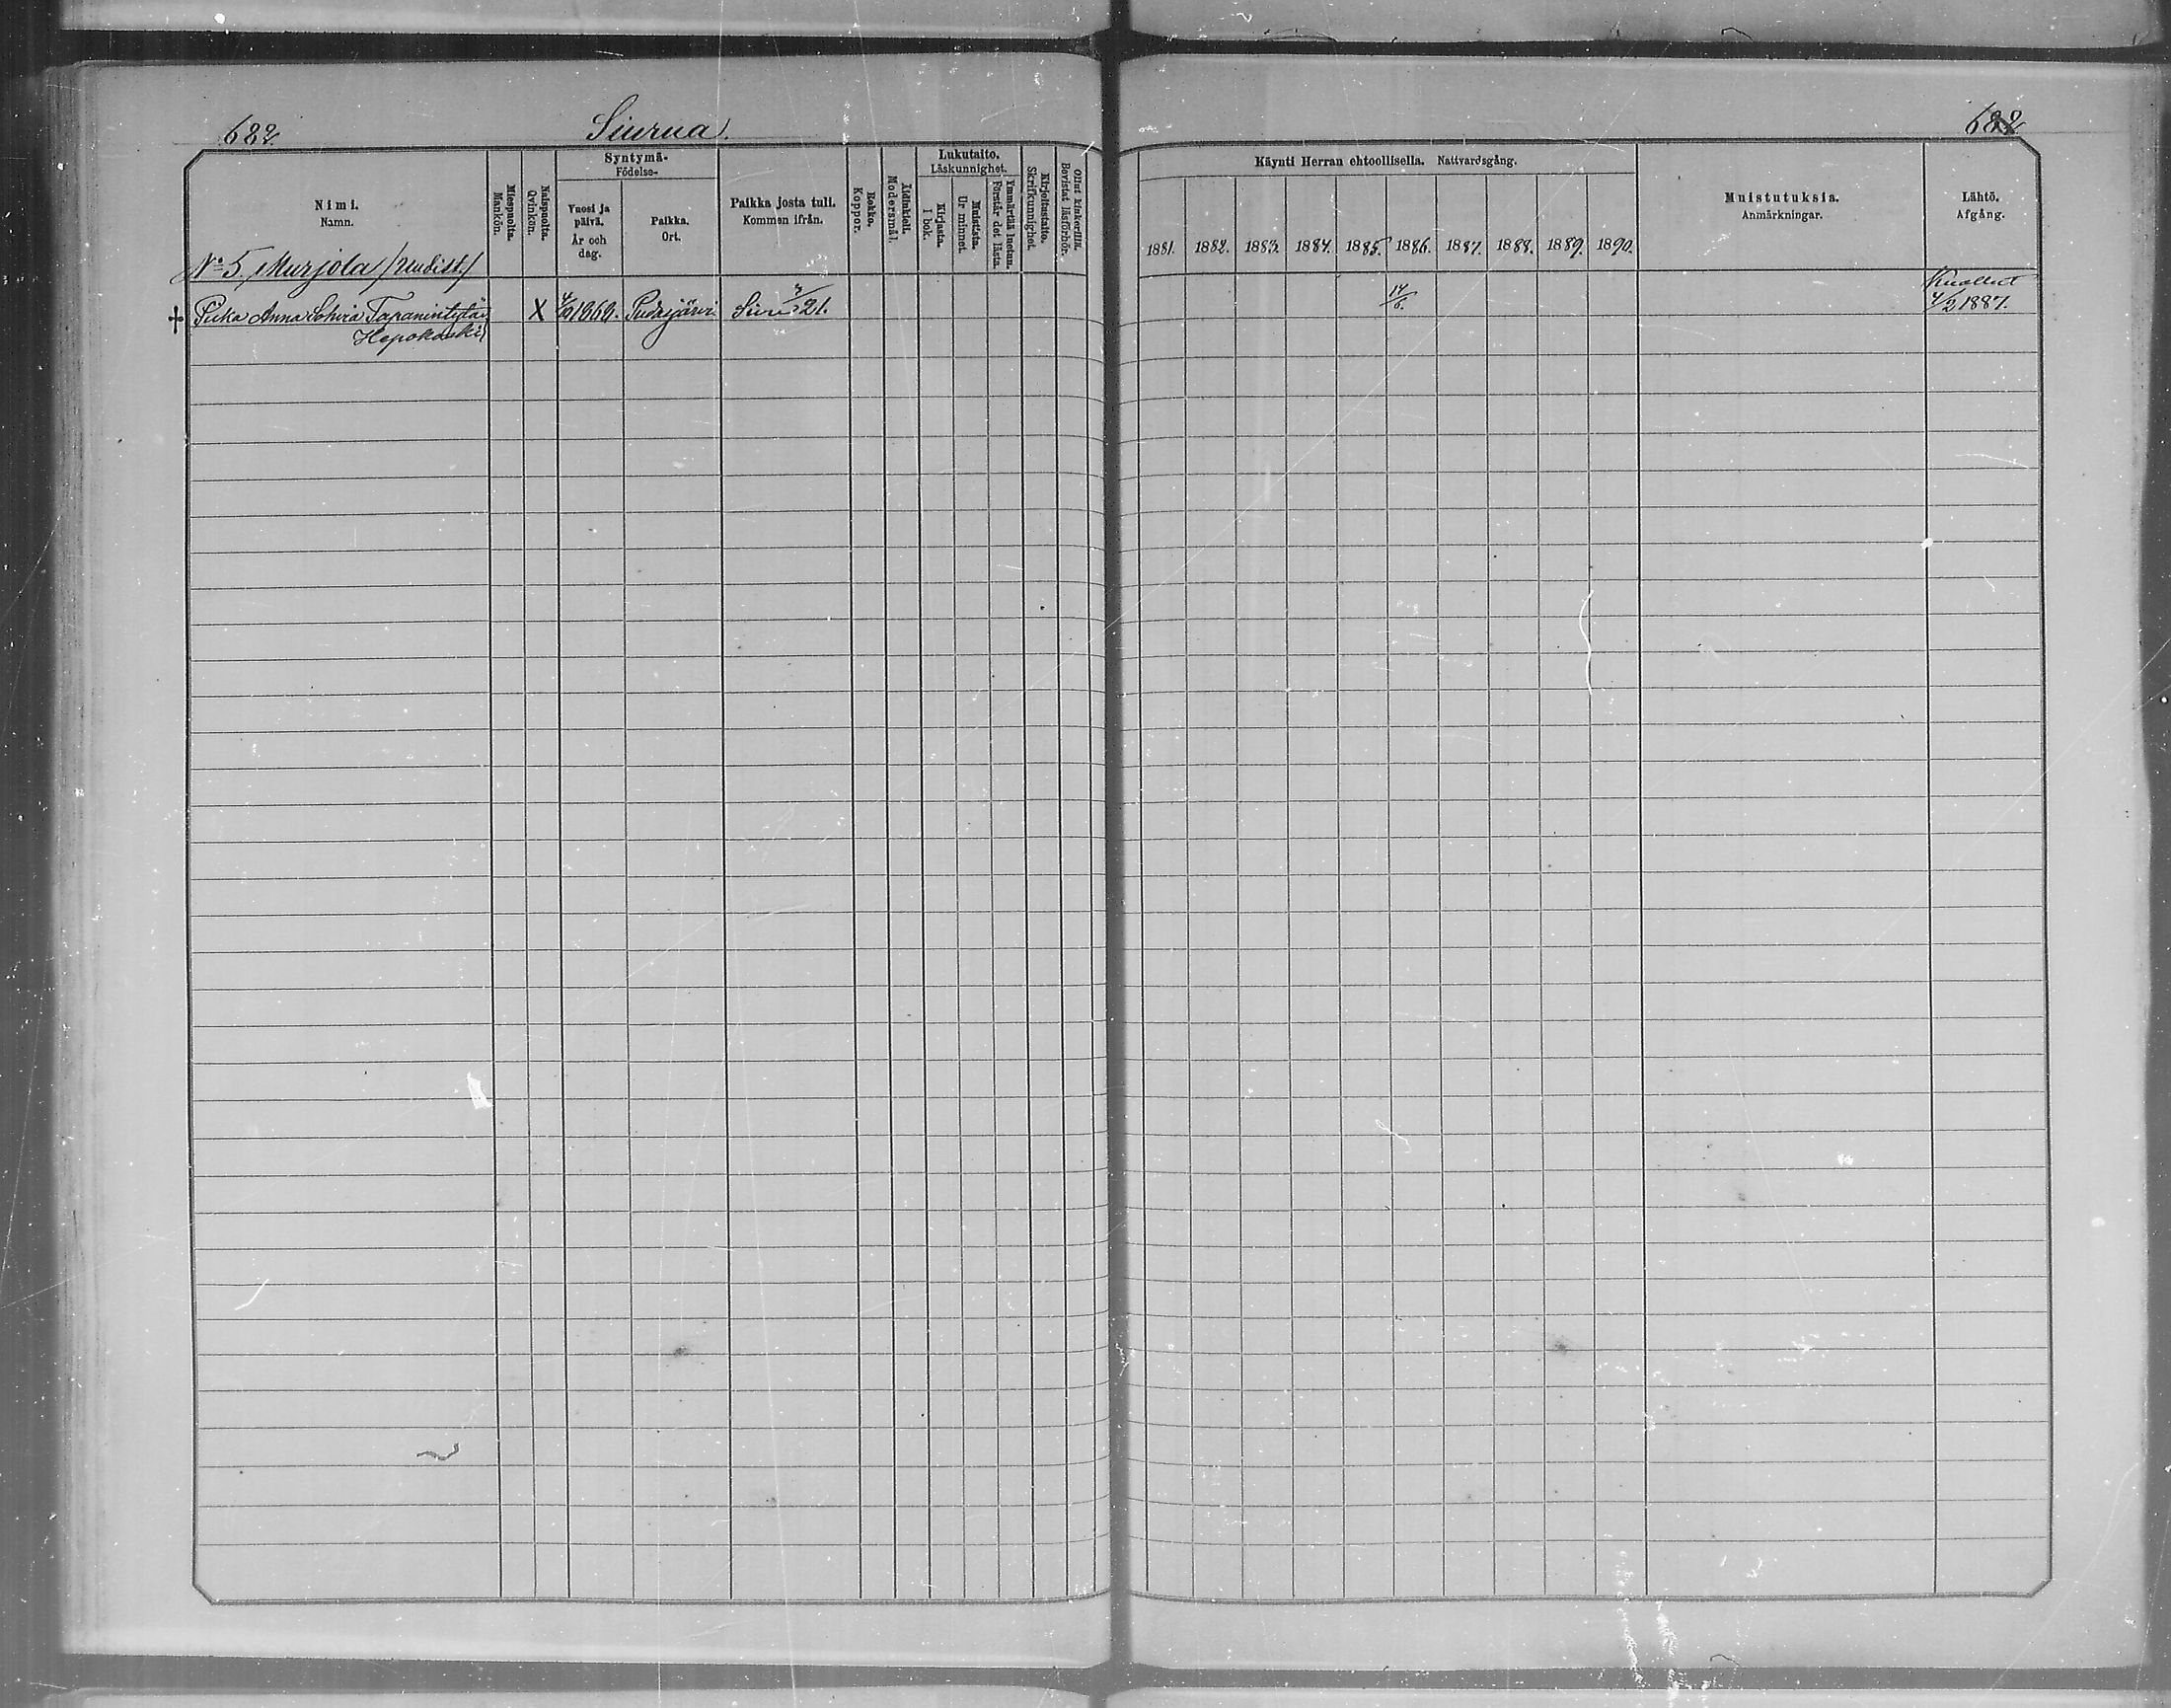 682.
Siurua.
Nimi.
Namn.
Miespuolta.
Mankön.
Naispuolta.
Qvinkön.
Syntymä-
Födelse-
Vuosi ja
päivä.
År och
dag.
Paikka.
Ort.
Paikka josta tuli.
Kommen ifrån.
Rokko.
Koppor.
Äidinkieli.
Modersmål.
Lukutaito.
Läskunnighet.
Kirjasta.
I bok.
Muistista.
Ur minnet.
Ymmärtää luetun.
Förstår det lästa.
Kirjoitustaito.
Skrifkunnighet.
Ollut kinkerillä.
Bevistat läsförhör.
No 5, Murjola /Uudist./
Piika Anna Sohvia Tapanintytär X 1868. Pudasjärvi Siur. 21.
Hepokoski
682
Käynti Herran ehtoollisella. Nattvardsgång.
1881. 1882. 1883. 1884. 1885. 1886. 1887. 1888. 1889. 1890.
Muistutuksia.
Anmärkningar.
Lähtö.
Afgång.
Kuollut
14/6. 4/2 1887.